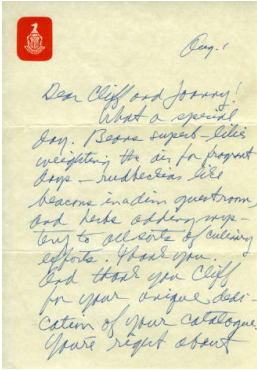 Aug. 1
Dear Cliff and Joanny!
What a special
day. Beans superb - lilies
weighting the air for fragrant
days - rudbeckias like
beacons in a dim guestroom,
and herbs adding mys-
tery to all sorts of culinary
efforts. Thank you.
And thank you Cliff
for your unique dedi-
cation of your catalogue.
You're right about